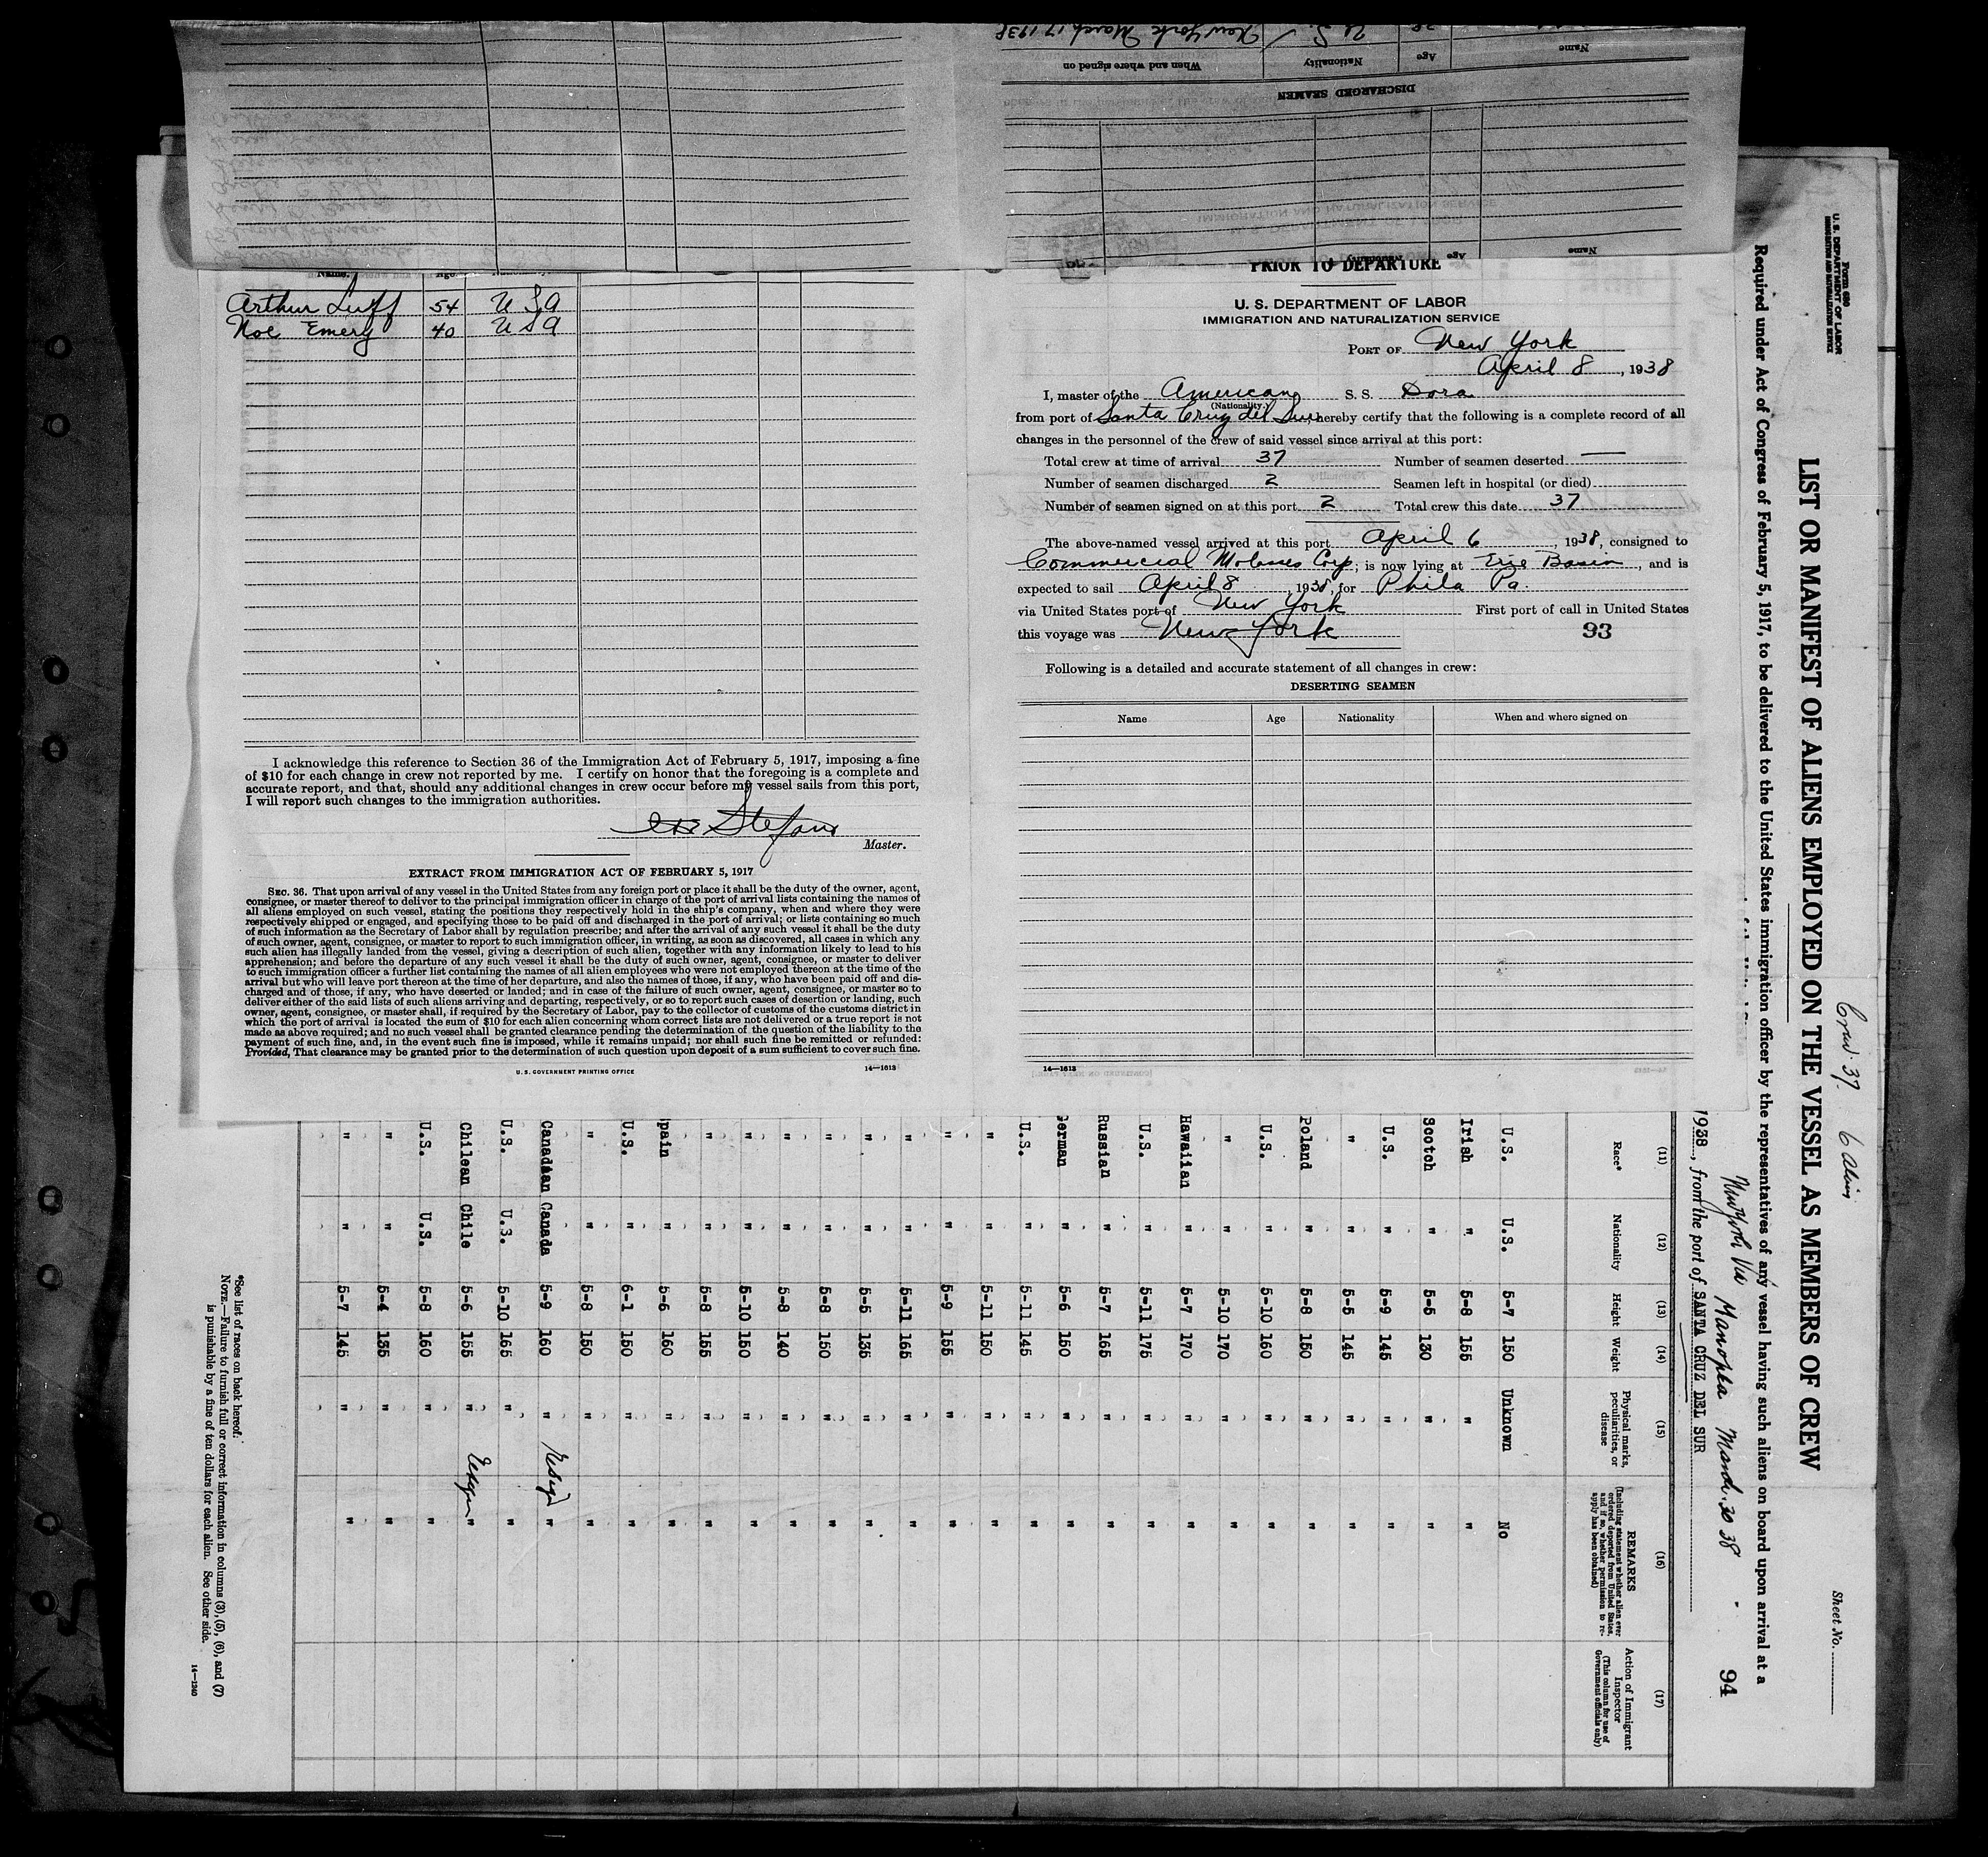 New York March 17 1938
When and where signed on
Nationality
Age
Name
DISCHARGED SEAMEN
Name
Age
Nationality
Name.
Age
Arthur Luff 54 U S A
Noe Emery 40 U S A
I acknowledge this reference to Section 36 of the Immigration Act of February 5, 1917, imposing a fine
of $10 for each change in crew not reported by me. I certify on honor that the foregoing is a complete and
accurate report, and that, should any additional changes in crew occur before my vessel sails from this port,
I will report such changes to the immigration authorities.
Stefans
Master.
EXTRACT FROM IMMIGRATION ACT OF FEBRUARY 5, 1917
SEC. 36. That upon arrival of any vessel in the United States from any foreign port or place it shall be the duty of the owner, agent,
consignee, or master thereof to deliver to the principal immigration officer in charge of the port of arrival lists containing the names of
all aliens employed on such vessel, stating the positions they respectively hold in the ship's company, when and where they were
respectively shipped or engaged, and specifying those to be paid off and discharged in the port of arrival; or lists containing so much
of such information as the Secretary of Labor shall by regulation prescribe; and after the arrival of any such vessel it shall be the duty
of such owner, agent, consignee, or master to report to such immigration officer, in writing, as soon as discovered, all cases in which any
such alien has illegally landed from the vessel, giving a description of such alien, together with any information likely to lead to his
apprehension; and before the departure of any such vessel it shall be the duty of such owner, agent, consignee, or master to deliver
to such immigration officer a further list containing the names of all alien employees who were not employed thereon at the time of the
arrival but who will leave port thereon at the time of her departure, and also the names of those, if any, who have been paid off and dis-
charged and of those, if any, who have deserted or landed; and in case of the failure of such owner, agent, consignee, or master so to
deliver either of the said lists of such aliens arriving and departing, respectively, or so to report such cases of desertion or landing, such
owner, agent, consignee, or master shall, if required by the Secretary of Labor, pay to the collector of customs of the customs district in
which the port of arrival is located the sum of $10 for each alien concerning whom correct lists are not delivered or a true report is not
made as above required; and no such vessel shall be granted clearance pending the determination of the question of the liability to the
payment of such fine, and, in the event such fine is imposed, while it remains unpaid; nor shall such fine be remitted or refunded:
Provided, That clearance may be granted prior to the determination of such question upon deposit of a sum sufficient to cover such fine.
U. S. GOVERNMENT PRINTING OFFICE 14—1613
PRIOR TO DEPARTURE
U. S. DEPARTMENT OF LABOR
IMMIGRATION AND NATURALIZATION SERVICE
PORT OF New York
April 8, 1938
I, master of the American S. S. Dora
(Nationality.)
from port of Santa Cruz del Sur, hereby certify that the following is a complete record of all
changes in the personnel of the crew of said vessel since arrival at this port:
Total crew at time of arrival 37 Number of seamen deserted —
Number of seamen discharged 2 Seamen left in hospital (or died)
Number of seamen signed on at this port 2 Total crew this date 37
The above-named vessel arrived at this port April 6, 1938, consigned to
Commercial Molasses Corp; is now lying at Erie Basin, and is
expected to sail April 8, 1938, for Phila Pa.
via United States port of New York First port of call in United States
this voyage was New York 93
Following is a detailed and accurate statement of all changes in crew:
DESERTING SEAMEN
Name Age Nationality When and where signed on
14—1613
Form 680
U. S. DEPARTMENT OF LABOR
IMMIGRATION AND NATURALIZATION SERVICE
Crew 37. 6 Alien
Sheet No.
LIST OR MANIFEST OF ALIENS EMPLOYED ON THE VESSEL AS MEMBERS OF CREW
Required under Act of Congress of February 5, 1917, to be delivered to the United States immigration officer by the representatives of any vessel having such aliens on board upon arrival at a
New York Via Manopla March 30 38 94
1938, from the port of SANTA CRUZ DEL SUR
(11) (12) (13) (14) (15) (16) (17)
Race* Nationality Height Weight Physical marks, peculiarities, or disease REMARKS (Including statement whether alien ever ordered deported from United States, and if so, whether permission to re-apply has been obtained) Action of Immigrant Inspector (This column for use of Government officials only)
U.S. U.S. 5-7 150 Unknown No
Irish " 5-8 155 " "
Scotch " 5-5 130 " "
U.S. " 5-9 145 " "
" " 5-5 145 " "
Poland " 5-8 150 " "
U.S. " 5-10 160 " "
" " 5-10 170 " "
Hawaiian " 5-7 170 " "
U.S. " 5-11 175 " "
Russian " 5-7 165 " "
German " 5-6 150 " "
U.S. " 5-11 145 " "
" " 5-11 150 " "
" " 5-9 155 " "
" " 5-11 165 " "
" " 5-5 135 " "
" " 5-8 150 " "
" " 5-8 140 " "
" " 5-10 150 " "
" " 5-8 155 " "
Spain " 5-6 160 " "
U.S. " 6-1 150 " "
" " 5-8 150 " "
Canadian Canada 5-9 160 " "
U.S. U.S. 5-10 165 " "
Chilean Chile 5-6 155 " "
U.S. U.S. 5-8 160 " "
" " 5-4 135 " "
" " 5-7 145 " "
*See list of races on back hereof.
NOTE.—Failure to furnish full or correct information in columns (3), (5), (6), and (7)
is punishable by a fine of ten dollars for each alien. See other side.
14—1240